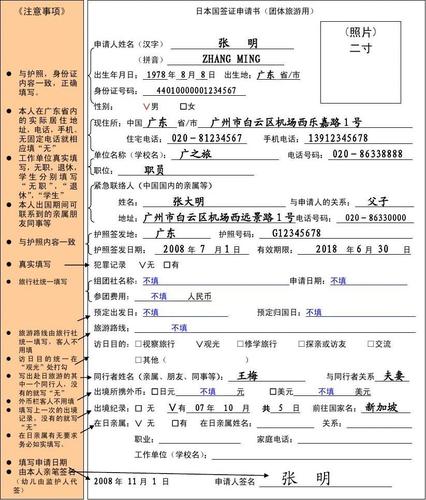 《注意事项》
● 与护照，身份证内容一致，正确填写。
● 本人在广东省内的实际居住地址，电话，手机。无固定电话就相应填“无”
● 工作单位真实填写，无职，退休，学生分别填写“无职”，“退休”，“学生”
● 本人出国期间可联系到的亲属朋友同事等
● 与护照内容一致
● 真实填写
● 旅行社统一填写
● 旅游路线由旅行社统一填写，客人不用填
● 访日目的统一在“观光”处打勾
● 写出赴日旅游的其中一个同行人，没有的就写“无”
● 外币栏客人不用填
● 填写上一次的出境记录，没有的就写“无”
● 在日亲属有无要求务必如实填写。
● 填写申请日期
● 由本人亲笔签名
（幼儿由监护人代签）
日本国签证申请书（团体旅游用）
（照片）
二寸
申请人姓名（汉字） 张 明
（拼音） ZHANG MING
出生年月日：1978 年 8 月 8 日 出生地：广东 省/市
身份证号码：44010000001234567
性别： √男 □女
现住所：中国 广东 省/市 广州市白云区机场西乐嘉路1号
住宅电话：020-81234567 手机电话：13912345678
单位名称（学校名）：广之旅 电话号码：020-86338888
职位： 职员
紧急联络人（中国国内的亲属等）
姓名： 张大明 与申请人的关系：父子
地址：广州市白云区机场西远景路1号 电话号码：020-86330000
护照签发地： 广东 护照号码：G12345678
护照签发日期：2008 年 7 月 1 日 有效期限：2018 年 6 月 30 日
犯罪记录 √无 □有
组团社名称：不填 申请日期：不填
参团费用： 不填 人民币
预定出发日：不填 预定归国日：不填
旅游路线：不填
访日目的：□视察旅行 √观光 □修学旅行 □探亲或访友 □交流
□其他（ ）
同行者姓名（亲属、朋友、同事等）： 王梅 与同行者关系 夫妻
出境所携外币：□日元 不填 元 □美元 不填 美元 □无
出境记录：□无 √有 07 年 10 月 共 5 日 前往国家名：新加坡
在日亲属：√无 □有 姓名： 关系：
职业： 家庭电话：
工作单位（学校名）：
2008 年 11 月 1 日 申请人签名 张 明